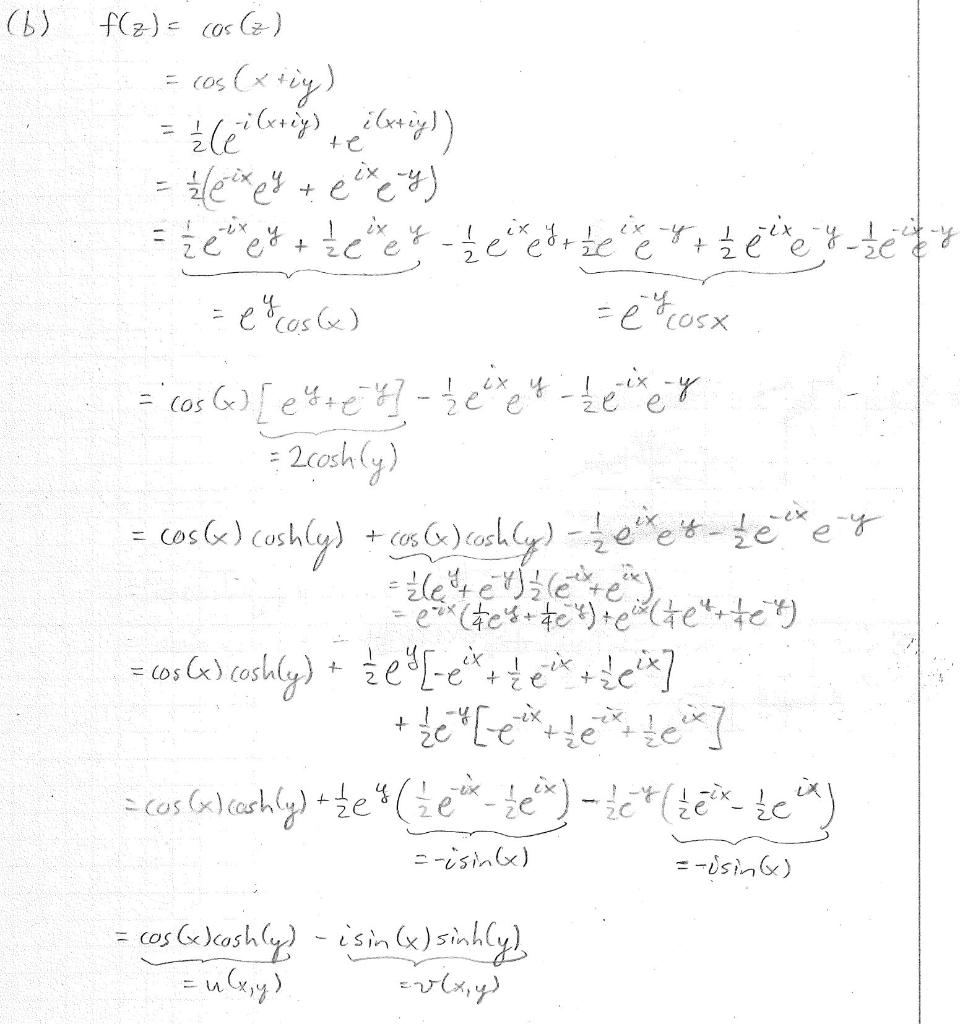 (b) f(z) = cos(z)
= cos(x+iy)
= ½(e^{-i(x+iy)} + e^{i(x+iy)})
= ½(e^{-ix}e^{y} + e^{ix}e^{-y})
= ½e^{-ix}e^{y} + ½e^{ix}e^{y} - ½e^{ix}e^{y} + ½e^{ix}e^{-y} + ½e^{-ix}e^{-y} - ½e^{-ix}e^{-y}
= e^{y}cos(x) = e^{-y}cosx
= cos(x)[e^{y}+e^{-y}] - ½e^{ix}e^{y} - ½e^{-ix}e^{-y}
= 2cosh(y)
= cos(x)cosh(y) + cos(x)cosh(y) - ½e^{ix}e^{y} - ½e^{-ix}e^{-y}
= ½(e^{y}+e^{-y})½(e^{-ix}+e^{ix})
= e^{-ix}(¼e^{y}+¼e^{-y})+e^{ix}(¼e^{y}+¼e^{-y})
= cos(x)cosh(y) + ½e^{y}[-e^{ix}+½e^{-ix}+½e^{ix}]
+ ½e^{-y}[-e^{-ix}+½e^{-ix}+½e^{ix}]
= cos(x)cosh(y) + ½e^{y}(½e^{-ix} - ½e^{ix}) - ½e^{-y}(½e^{-ix} - ½e^{ix})
= -isin(x) = -isin(x)
= cos(x)cosh(y) - isin(x)sinh(y)
= u(x,y) = v(x,y)